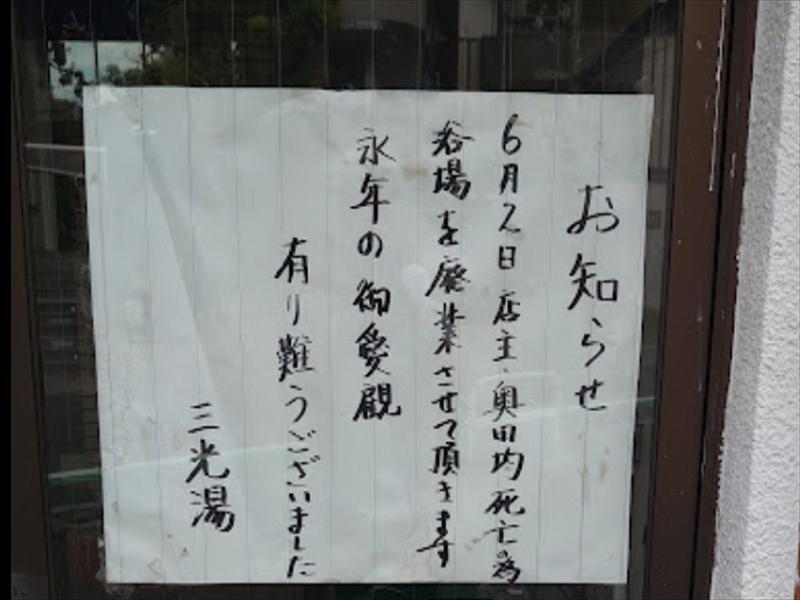 お知らせ
6月2日店主、奥田内死亡の為
浴場を廃業させて頂きます
永年の御愛顧
有り難うございました
三光湯